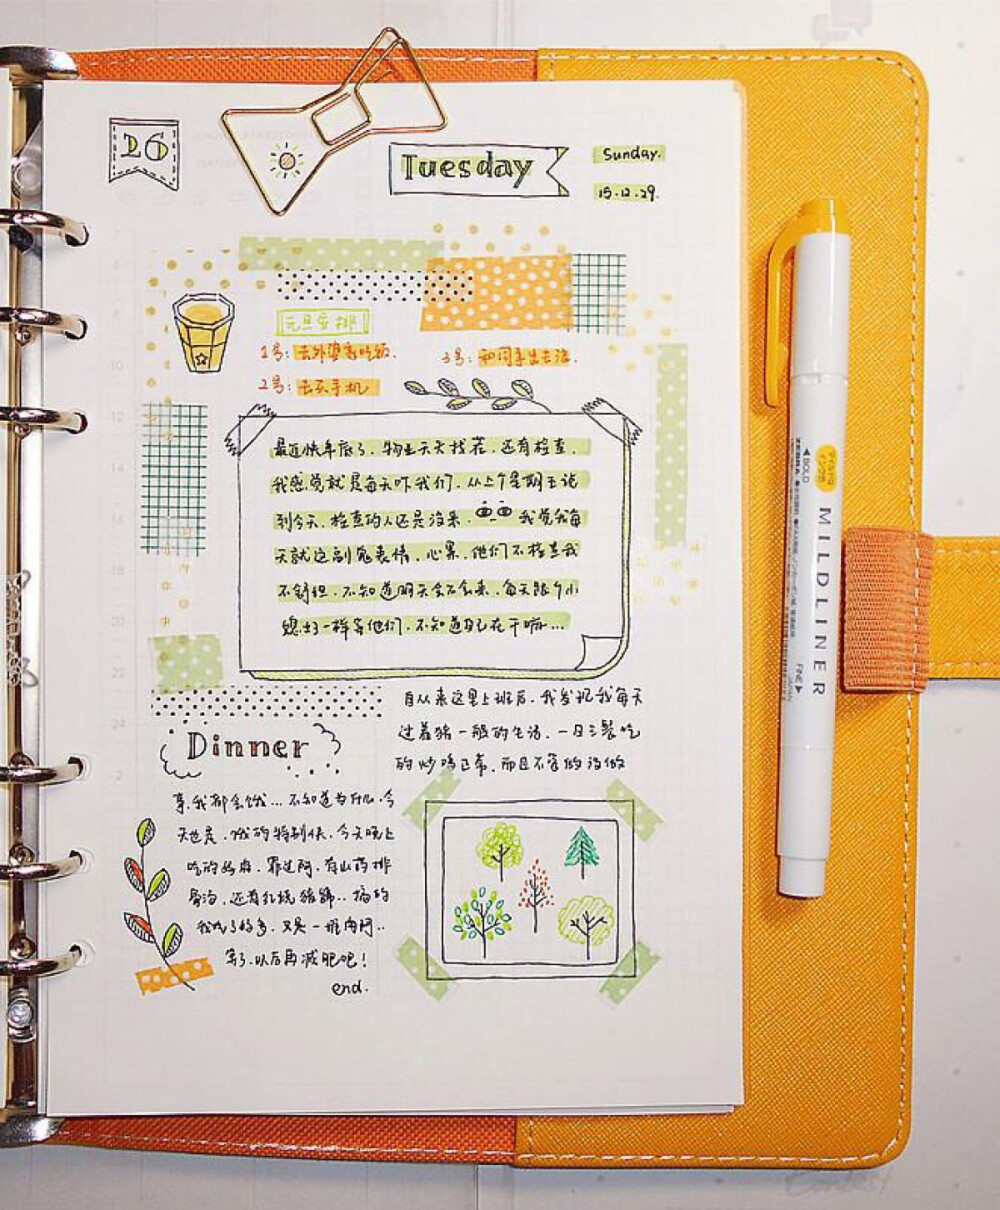 26
Tuesday
Sunday.
15.12.29.
元旦安排
1号：去外婆家吃饭.
3号：和同事出去浪.
2号：去买手机
最近快年底了.物业天天找茬.还有检查.
我感觉就是每天吓我们.从上个星期五说
到今天.检查的人还是没来. 我觉我每
天就这副鬼表情.心累.他们不检查我
不舒坦.不知道明天会不会来.每天跟个小
媳妇一样等他们.不知道自己在干嘛...
自从来这里上班后.我发现我每天
过着猪一般的生活.一日三餐吃
的妙鸡正常.而且不管的没做
Dinner
事.我都会饿...不知道为什么.今
天也是.饿的特别快.今天晚上
吃的好麻.罪过阿.有山药排
骨汤.还有红烧猪蹄..搞的
我吃了好多.又是一堆肉阿..
等了.以后再减肥吧!
end.
マイルドな
インク色
BOLD
ZEBRA
MILDLINER
FINE
JAPAN